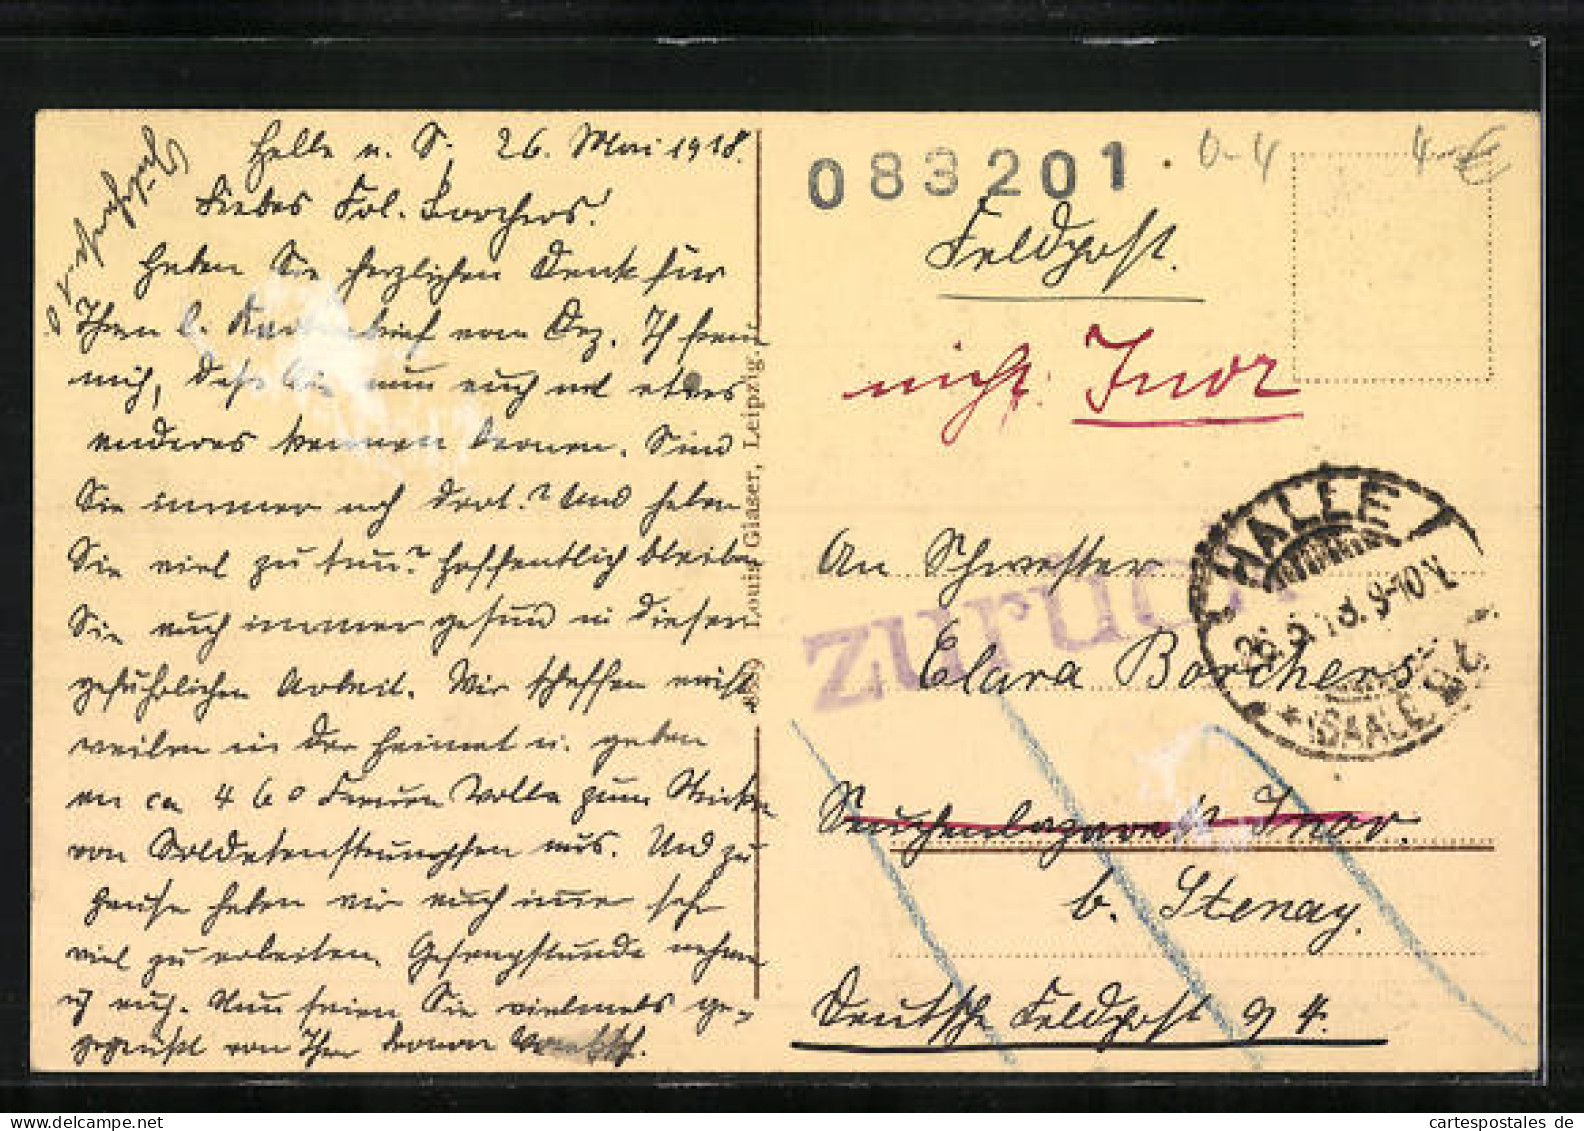 Halle a. S., 26. Mai 1918.
Liebes Frl. Borchers!
Haben Sie herzlichen Dank für
Ihren l. Kartenbrief vom Dez. Ich freue
mich, daß Sie nun auch mal etwas
anderes kennen lernen. Sind
Sie immer noch dort? Und haben
Sie viel zu tun? Hoffentlich bleiben
Sie auch immer gesund in dieser
gefährlichen Arbeit. Wir schaffen
weilen in der Heimat u. geben
an ca 460 Frauen Wolle zum Stricken
von Soldatenstrümpfen aus. Und zu
Hause haben wir auch immer sehr
viel zu arbeiten. nehme
ich auch. Nun seien Sie vielmals ge-
grüßt von Ihrer
Louis Glaser, Leipzig.
083201
0-4
Feldpost.
nicht Inor
An Schwester
zurück
HALLE
26.5.18. 9-10V
* (SAALE) *
Clara Borchers
Seuchenlazarett Inor.
b. Stenay.
Deutsche Feldpost 94.
cartespostales de